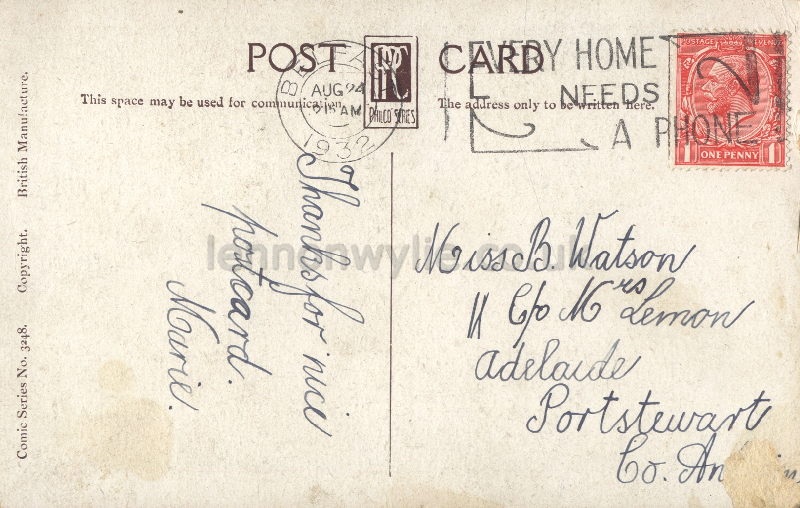 POST CARD
EVERY HOME
NEEDS
A PHONE
POSTAGE REVENUE
1 ONE PENNY 1
AUG 24
1932
This space may be used for communication.
The address only to be written here.
PHILCO SERIES
Thanks for nice
postcard.
Marie.
Miss B. Watson
11 C/o Mrs Lemon
Adelaide
Portstewart
Co.
Comic Series No. 3248. Copyright. British Manufacture.
lennonwylie.co.uk